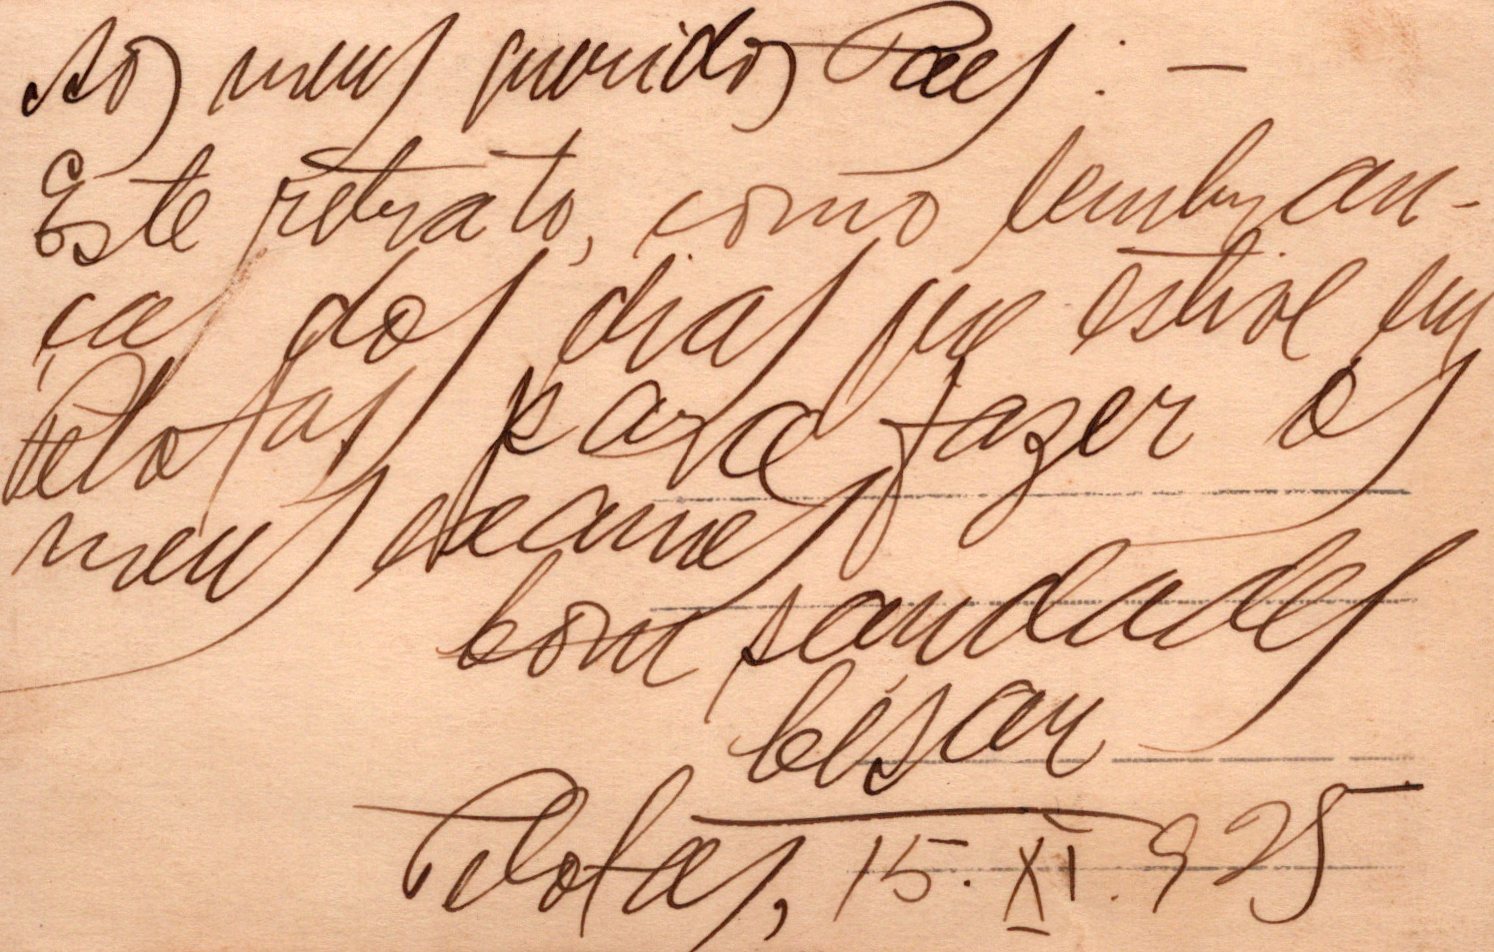 Aos meus queridos Paes: —
Este retrato, como lembran-
ças dos dias que estive em
Pelotas para fazer os
meus exames
Com saudades
Cesar
Pelotas, 15. XI. 925